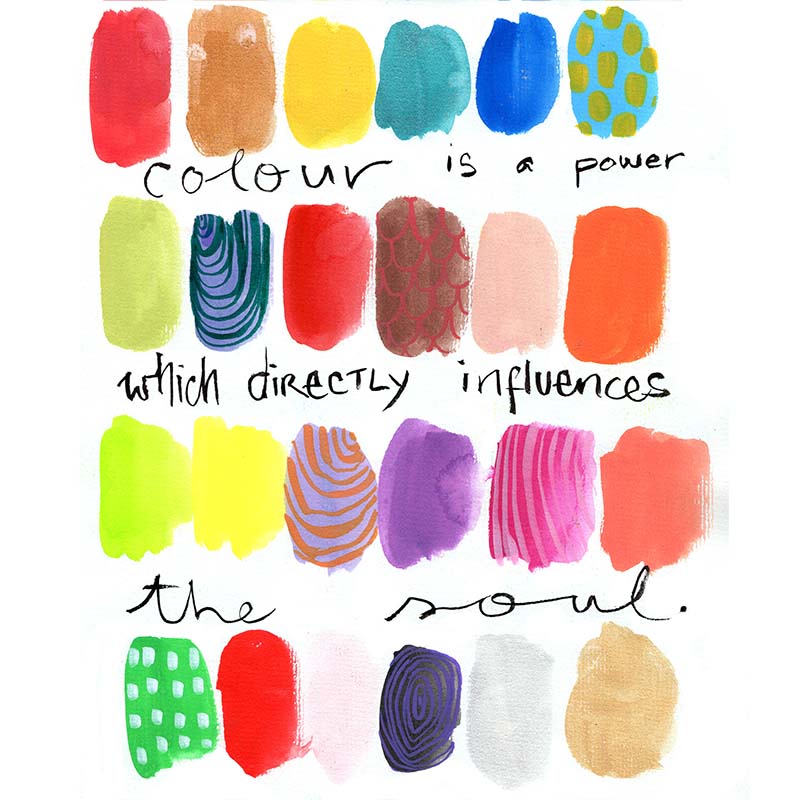 colour is a power
which dIRECTLY influences
the soul.